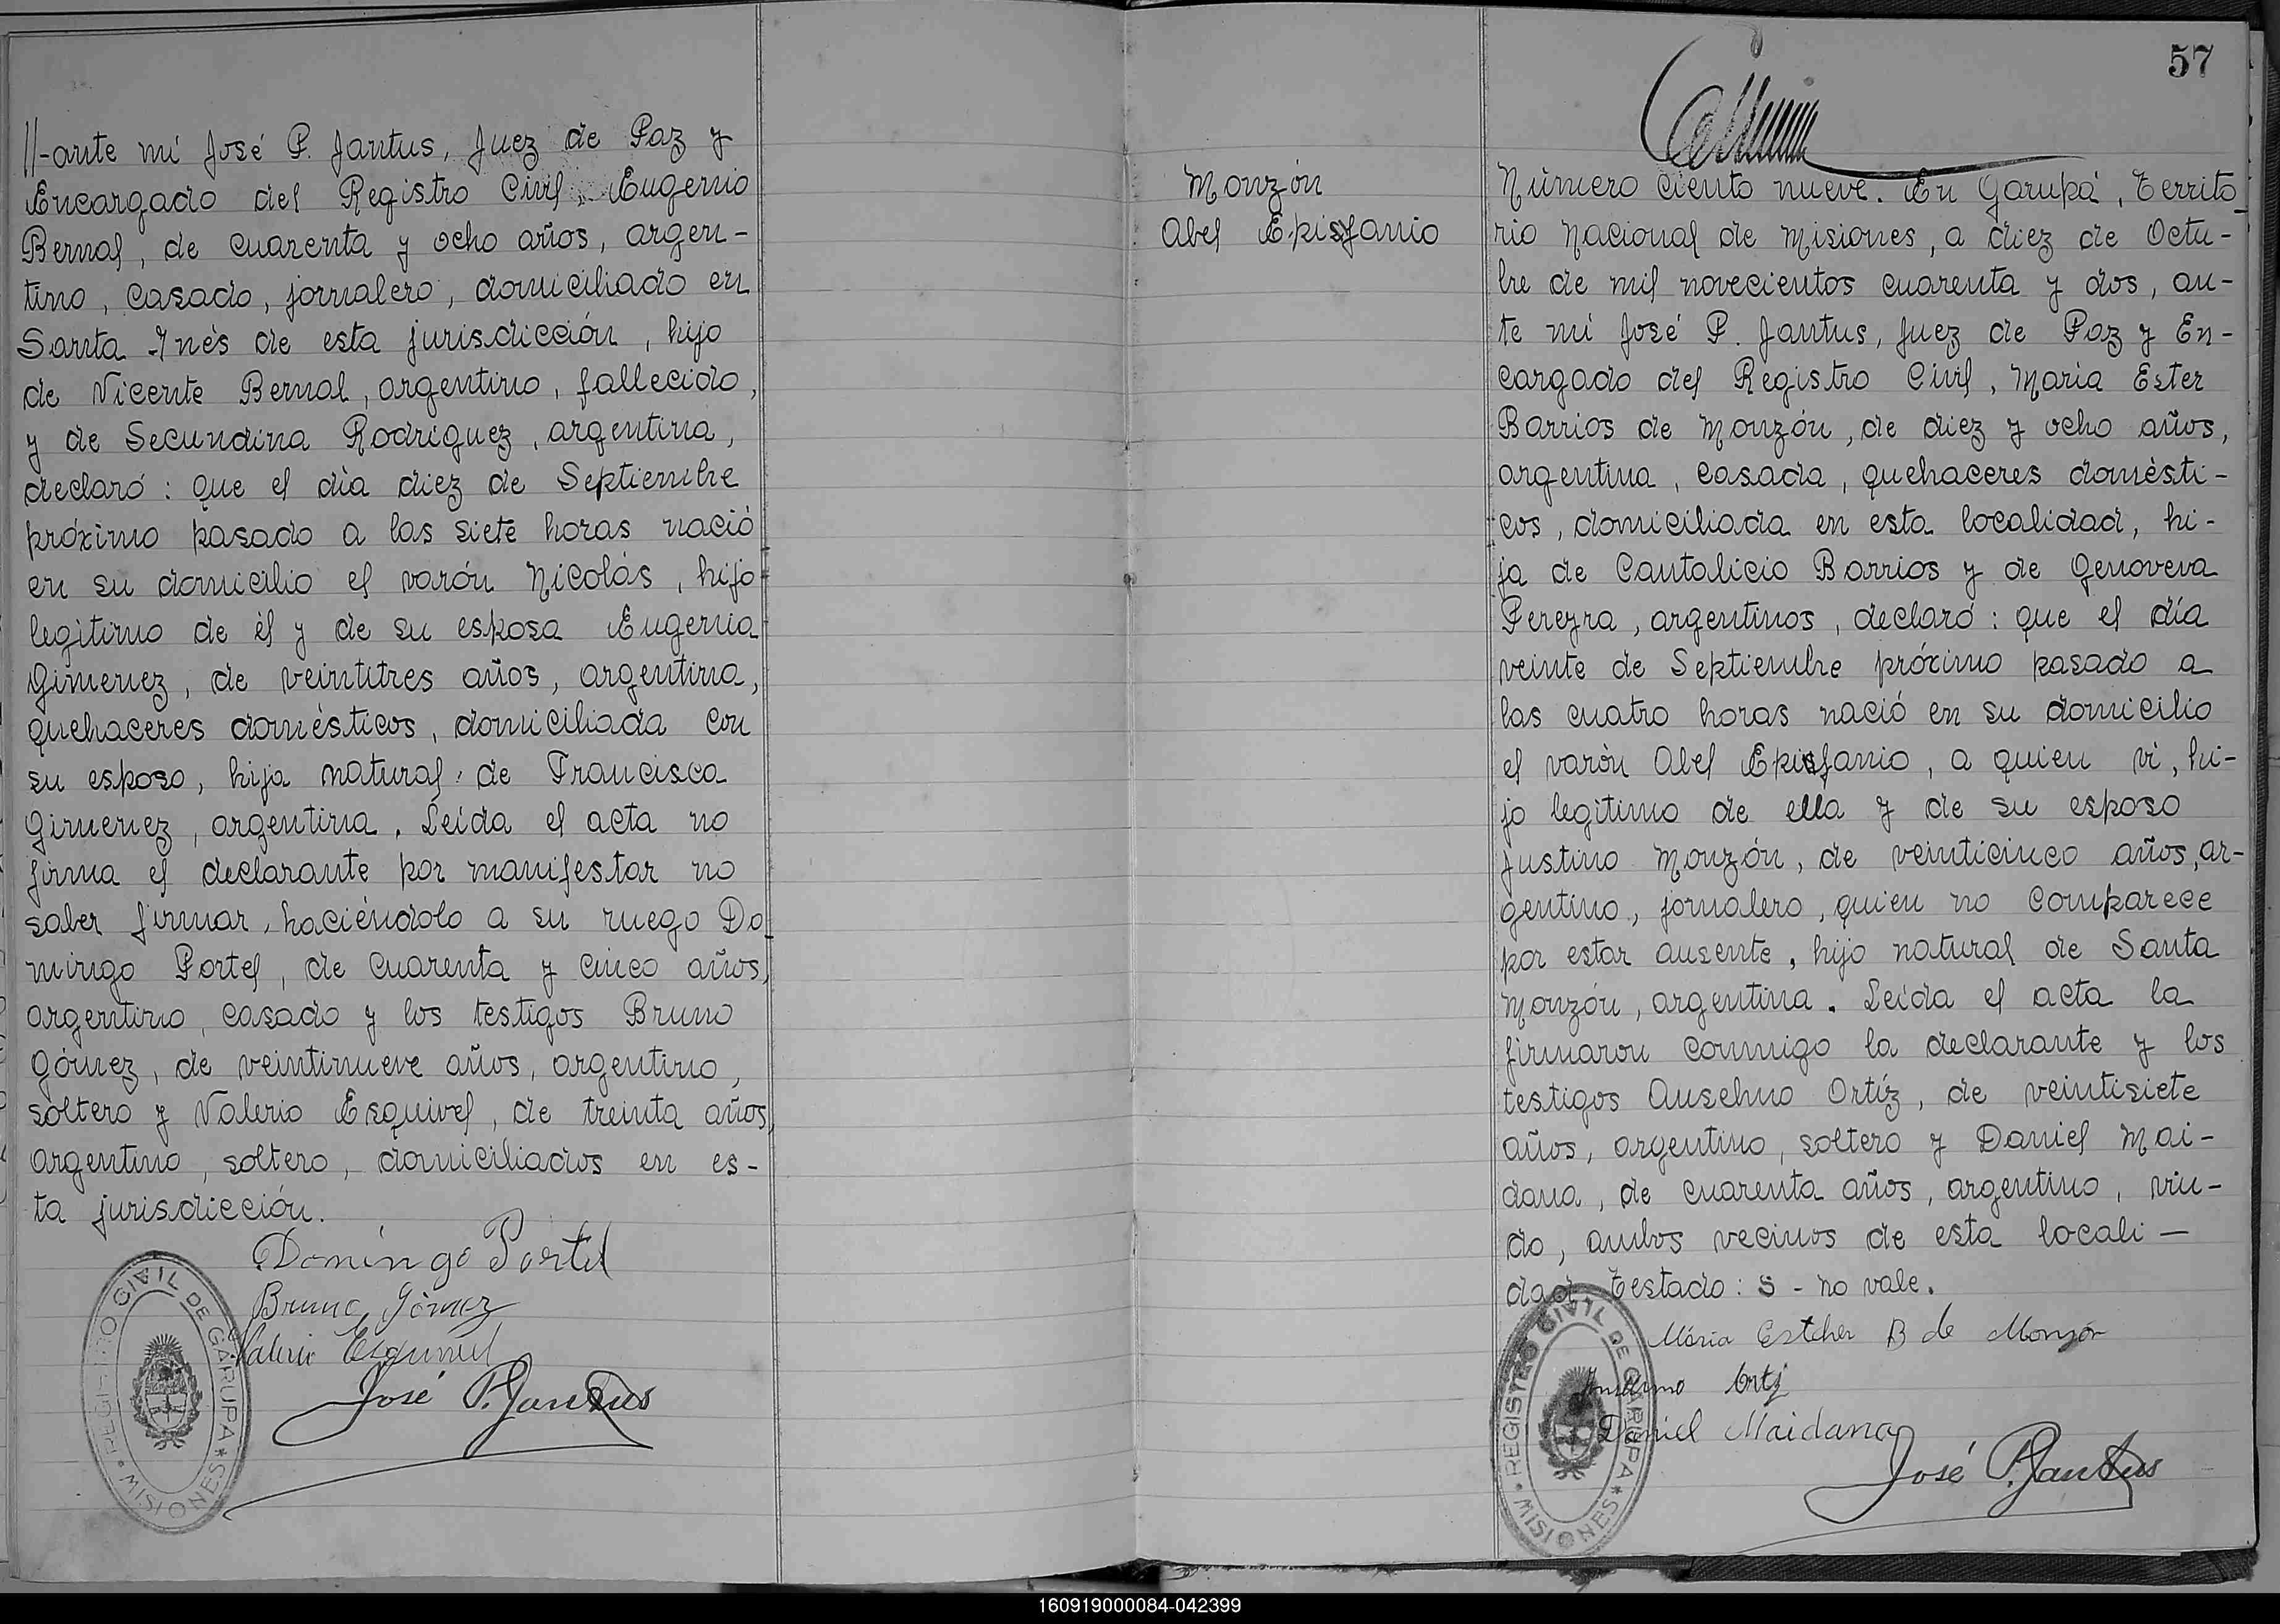 //-ante mi José P. Jantus, Juez de Paz y
Encargado del Registro Civil, Eugenio
Bernal, de cuarenta y ocho años, argen-
tino, casado, jornalero, domiciliado en
Santa Inés de esta jurisdicción, hijo
de Vicente Bernal, argentino, fallecido,
y de Secundina Rodriguez, argentina,
declaró: que el día diez de Septiembre
próximo pasado a las siete horas nació
en su domicilio el varón Nicolás, hijo
legitimo de él y de su esposa Eugenia
Gimenez, de veintitres años, argentina,
quehaceres domésticos, domiciliada con
su esposo, hija natural de Francisca
Gimenez, argentina. Leída el acta no
firma el declarante por manifestar no
saber firmar, haciéndolo a su ruego Do
mingo Portel, de cuarenta y cinco años,
argentino, casado y los testigos Bruno
Gómez, de veintinueve años, argentino,
soltero y Valerio Esquivel, de treinta años,
argentino, soltero, domiciliados en es-
ta jurisdicción.
Domingo Portel
Bruno Gómez
Valerio Esquivel
José P. Jantus
REGISTRO CIVIL DE GARUPA * MISIONES *
57
Monzón
Abel Episfanio
Número ciento nueve. En Garupá, Territo_
rio Nacional de Misiones, a diez de Octu-
bre de mil novecientos cuarenta y dos, an-
te mi José P. Jantus, Juez de Paz y En-
cargado del Registro Civil, Maria Ester
Barrios de Monzón, de diez y ocho años,
argentina, casada, quehaceres domésti-
cos, domiciliada en esta localidad, hi-
ja de Cantalicio Barrios y de Genoveva
Pereyra, argentinos, declaró: que el día
veinte de Septiembre próximo pasado a
las cuatro horas nació en su domicilio
el varón Abel Episfanio, a quien vi, hi-
jo legítimo de ella y de su esposo
Justino Monzón, de veinticinco años, ar-
gentino, jornalero, quien no comparece
por estar ausente, hijo natural de Santa
Monzón, argentina. Leída el acta la
firmaron conmigo la declarante y los
testigos Anselmo Ortíz, de veintisiete
años, argentino, soltero y Daniel Mai-
dana, de cuarenta años, argentino, viu-
do, ambos vecinos de esta locali-
dad. Testado: s - no vale.
Mária Estcher B de Monzón
Anselmo Ortiz
Daniel Maidana
José P. Jantus
REGISTRO CIVIL DE GARUPA * MISIONES *
160919000084-042399